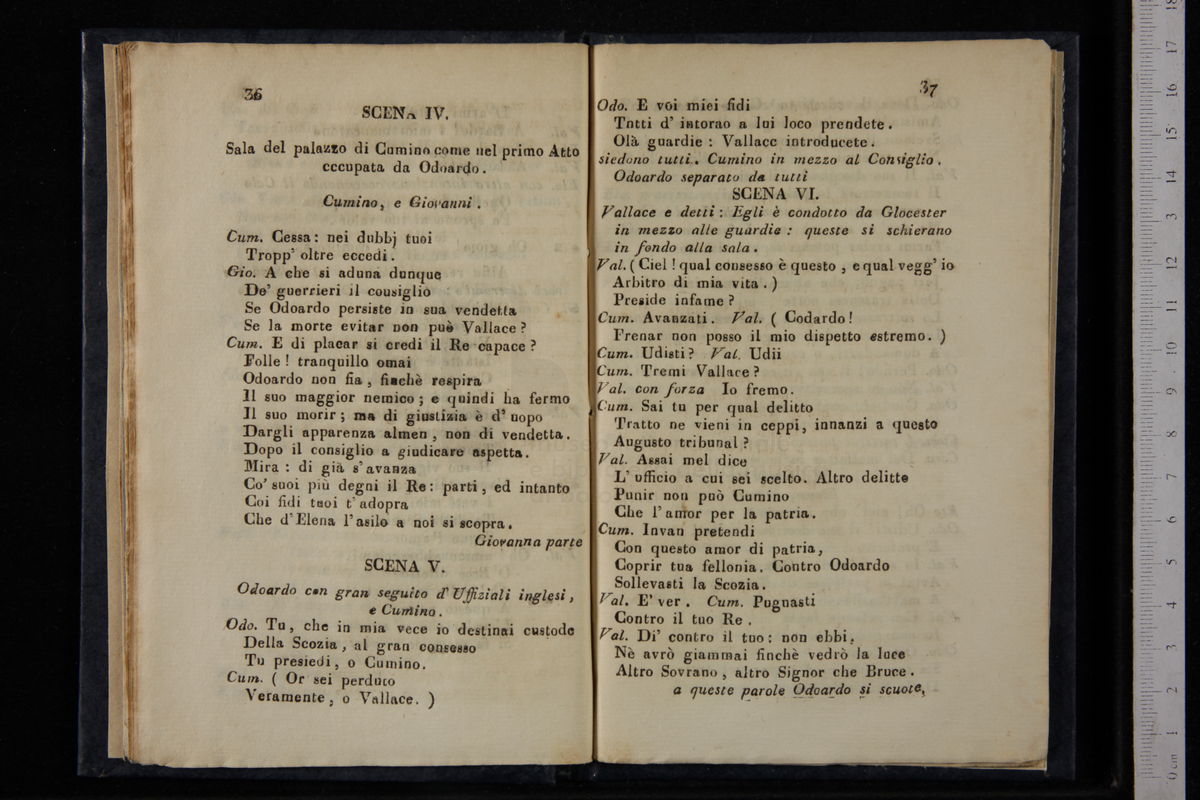 36
SCENA IV.
Sala del palazzo di Cumino come nel primo Atto
cccupata da Odoardo.
Cumino, e Giovanni.
Cum. Cessa: nei dubbj tuoi
Tropp' oltre eccedi.
Gio. A che si aduna dunque
De' guerrieri il cousiglio
Se Odoardo persiste in sua vendetta
Se la morte evitar non può Vallace?
Cum. E di placar si credi il Re capace?
Folle! tranquillo omai
Odoardo non fia, finchè respira
Il suo maggior nemico; e quindi ha fermo
Il suo morir; ma di giustizia è d' uopo
Dargli apparenza almen, non di vendetta.
Dopo il consiglio a giudicare aspetta.
Mira: di già s' avanza
Co' suoi più degni il Re: parti, ed intanto
Coi fidi tuoi t' adopra
Che d' Elena l' asilo a noi si scopra.
Giovanna parte
SCENA V.
Odoardo con gran seguito d' Uffiziali inglesi,
e Cumino.
Odo. Tu, che in mia vece io destinai custode
Della Scozia, al gran consesso
Tu presiedi, o Cumino.
Cum. (Or sei perduto
Veramente, o Vallace.)
37
Odo. E voi miei fidi
Tntti d' intorao a lui loco prendete.
Olà guardie: Vallace introducete.
siedono tutti. Cumino in mezzo al Consiglio.
Odoardo separato da tutti
SCENA VI.
Vallace e detti: Egli è condotto da Glocester
in mezzo alle guardie: queste si schierano
in fondo alla sala.
Val. (Ciel! qual consesso è questo, e qual vegg' io
Arbitro di mia vita.)
Preside infame?
Cum. Avanzati. Val. (Codardo!
Frenar non posso il mio dispetto estremo.)
Cum. Udisti? Val. Udii
Cum. Tremi Vallace?
Val. con forza Io fremo.
Cum. Sai tu per qual delitto
Tratto ne vieni in ceppi, innanzi a questo
Augusto tribunal?
Val. Assai mel dice
L' ufficio a cui sei scelto. Altro delitto
Punir non può Cumino
Che l' amor per la patria.
Cum. Invan pretendi
Con questo amor di patria,
Coprir tua fellonia. Contro Odoardo
Sollevasti la Scozia.
Val. E' ver. Cum. Pugnasti
Contro il tuo Re.
Val. Di' contro il tuo: non ebbi,
Nè avrò giammai finchè vedrò la luce
Altro Sovrano, altro Signor che Bruce.
a queste parole Odoardo si scuote,
0 cm 1 2 3 4 5 6 7 8 9 10 11 12 13 14 15 16 17 18